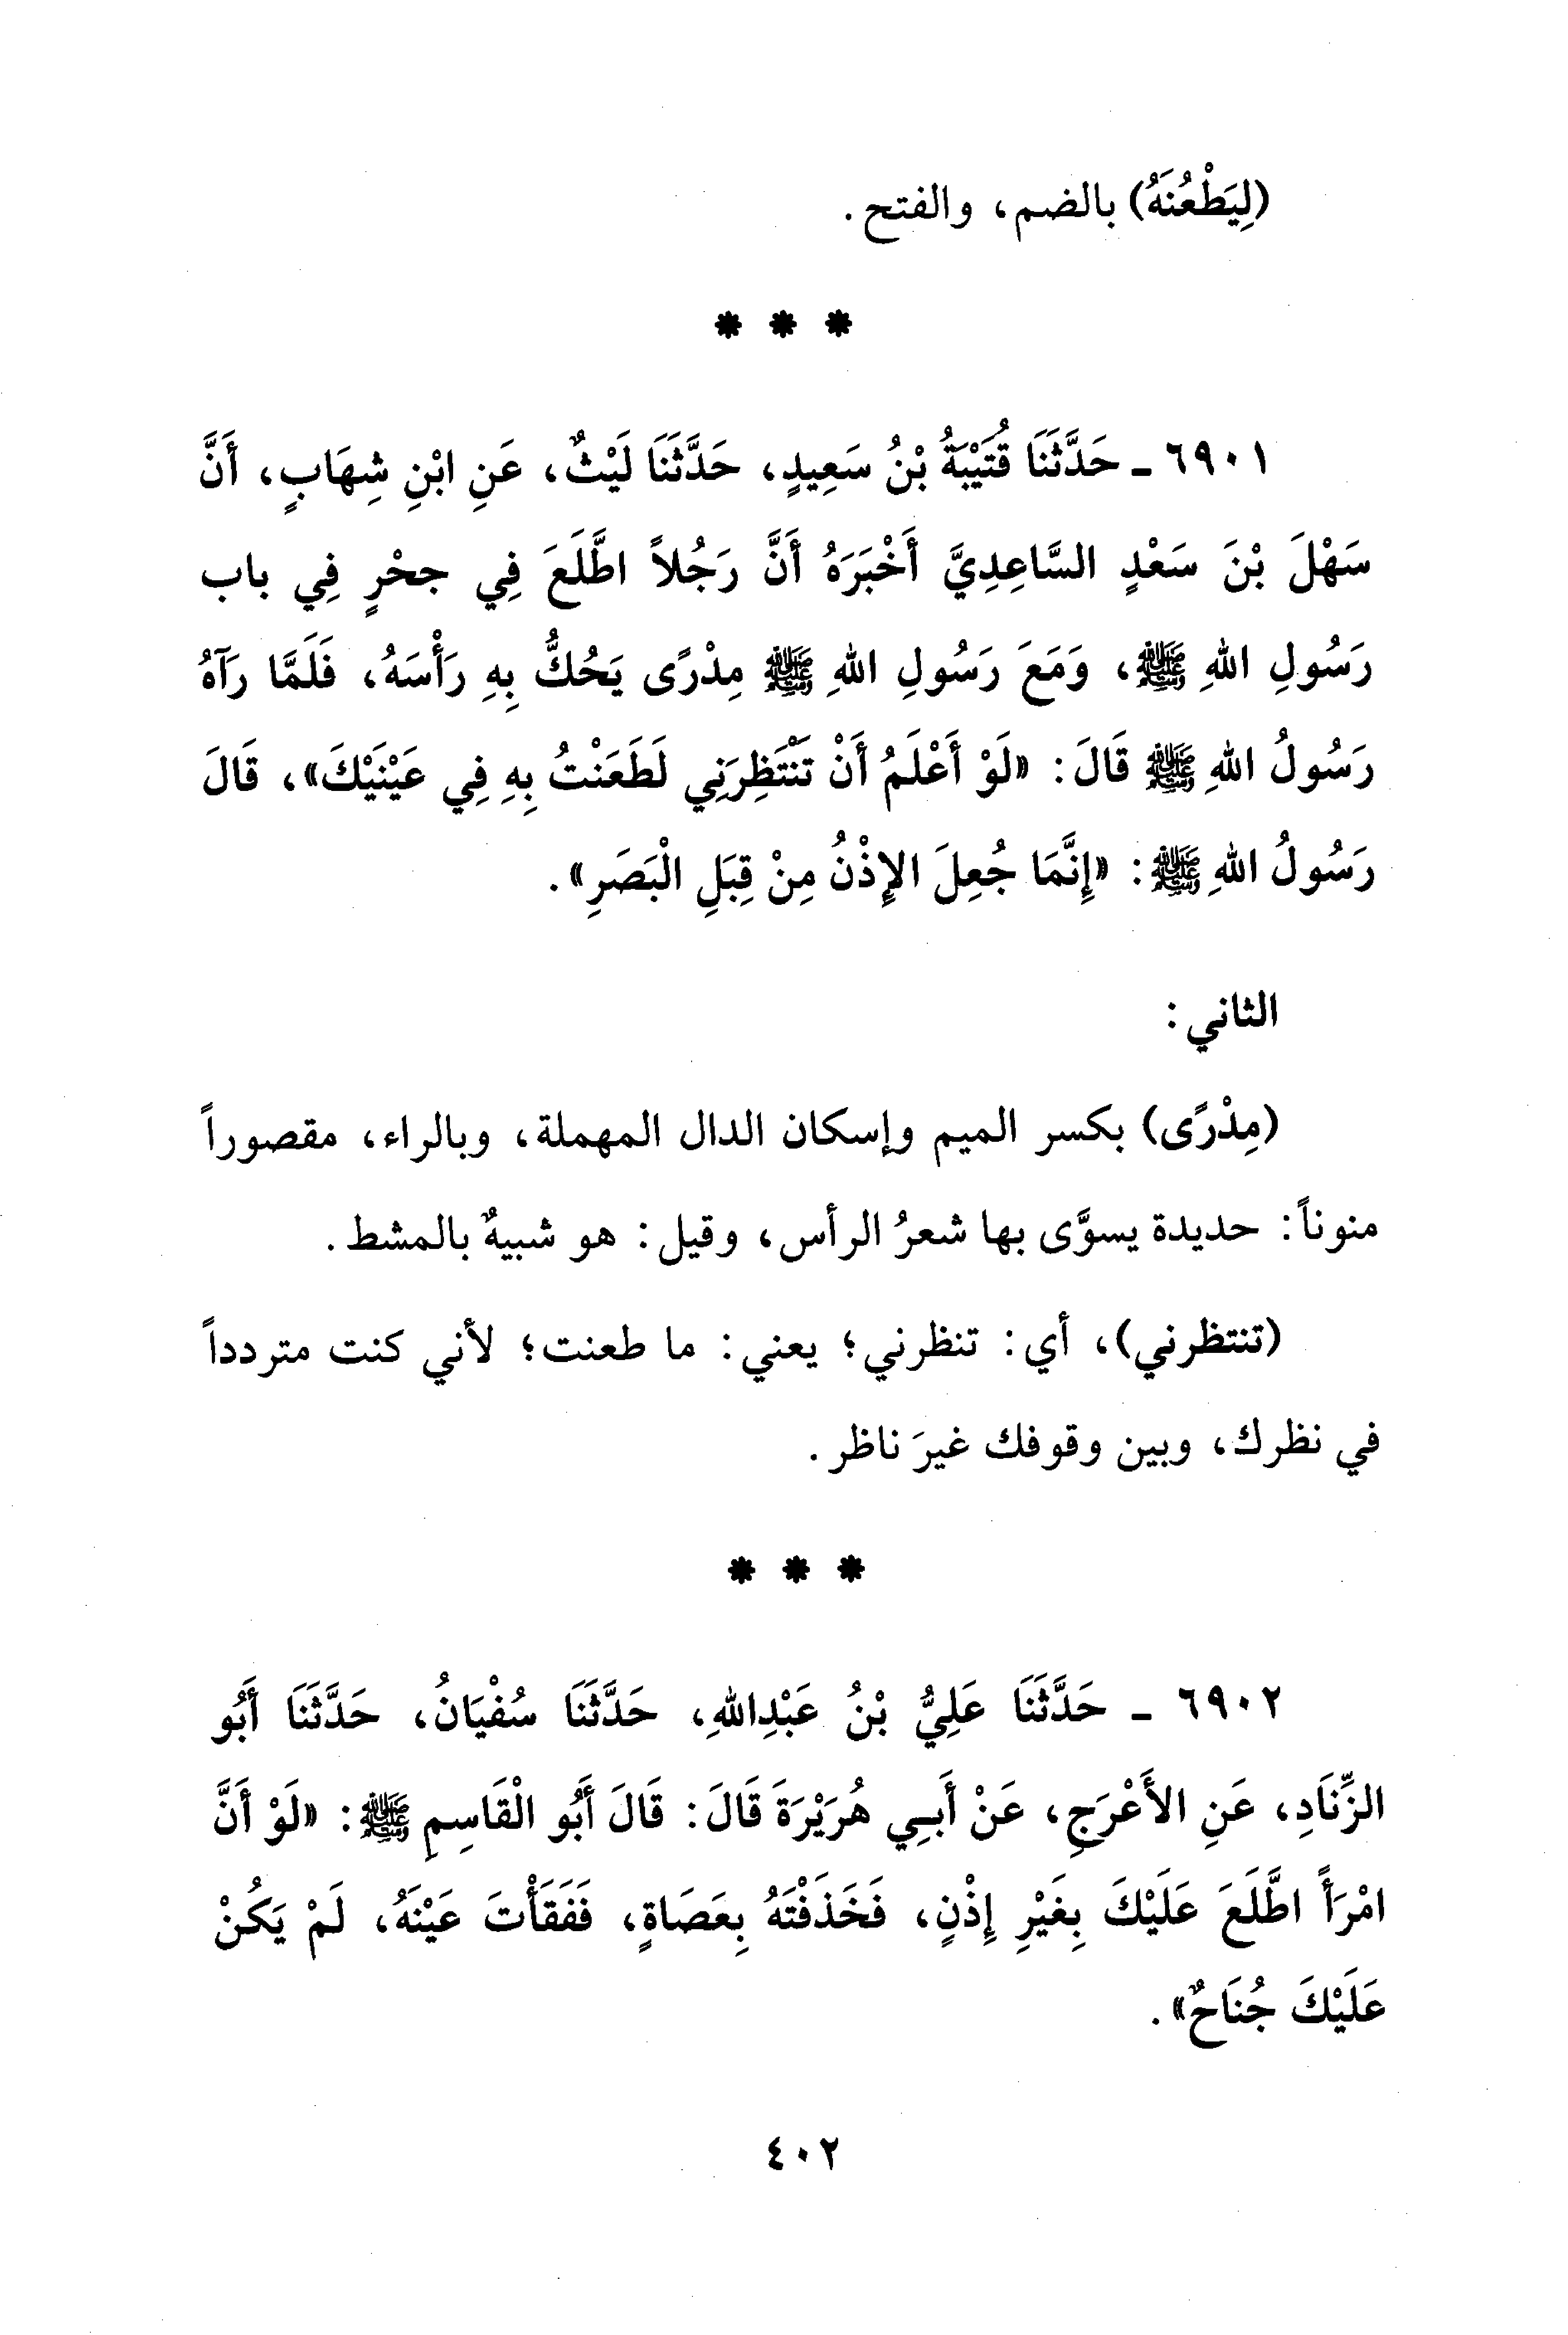 (لِيَطْعُنَهُ) بالضم، والفتح.
* * *
٦٩٠١ - حَدَّثَنَا قُتَيْبَةُ بْنُ سَعِيدٍ، حَدَّثَنَا لَيْثٌ، عَنِ ابْنِ شِهَابٍ، أَنَّ
سَهْلَ بْنَ سَعْدٍ السَّاعِدِيَّ أَخْبَرَهُ أَنَّ رَجُلاً اطَّلَعَ فِي جحْرٍ فِي باب
رَسُولِ اللهِ ﷺ، وَمَعَ رَسُولِ اللهِ ﷺ مِدْرًى يَحُكُّ بِهِ رَأْسَهُ، فَلَمَّا رَآهُ
رَسُولُ اللهِ ﷺ قَالَ: «لَوْ أَعْلَمُ أَنْ تَنْتَظِرَنِي لَطَعَنْتُ بِهِ فِي عَيْنَيْكَ»، قَالَ
رَسُولُ اللهِ ﷺ: «إِنَّمَا جُعِلَ الإِذْنُ مِنْ قِبَلِ الْبَصَرِ».
الثاني:
(مِدْرًى) بكسر الميم وإسكان الدال المهملة، وبالراء، مقصوراً
منوناً: حديدة يسوَّى بها شعرُ الرأس، وقيل: هو شبيهٌ بالمشط.
(تنتظرني)، أي: تنظرني؛ يعني: ما طعنت؛ لأني كنت متردداً
في نظرك، وبين وقوفك غيرَ ناظر.
* * *
٦٩٠٢ - حَدَّثَنَا عَلِيُّ بْنُ عَبْدِاللهِ، حَدَّثَنَا سُفْيَانُ، حَدَّثَنَا أَبُو
الزِّنَادِ، عَنِ الأَعْرَجِ، عَنْ أَبِي هُرَيْرَةَ قَالَ: قَالَ أَبُو الْقَاسِمِ ﷺ: «لَوْ أَنَّ
امْرَأً اطَّلَعَ عَلَيْكَ بِغَيْرِ إِذْنٍ، فَخَذَفْتَهُ بِعَصَاةٍ، فَفَقَأْتَ عَيْنَهُ، لَمْ يَكُنْ
عَلَيْكَ جُنَاحٌ».
٤٠٢